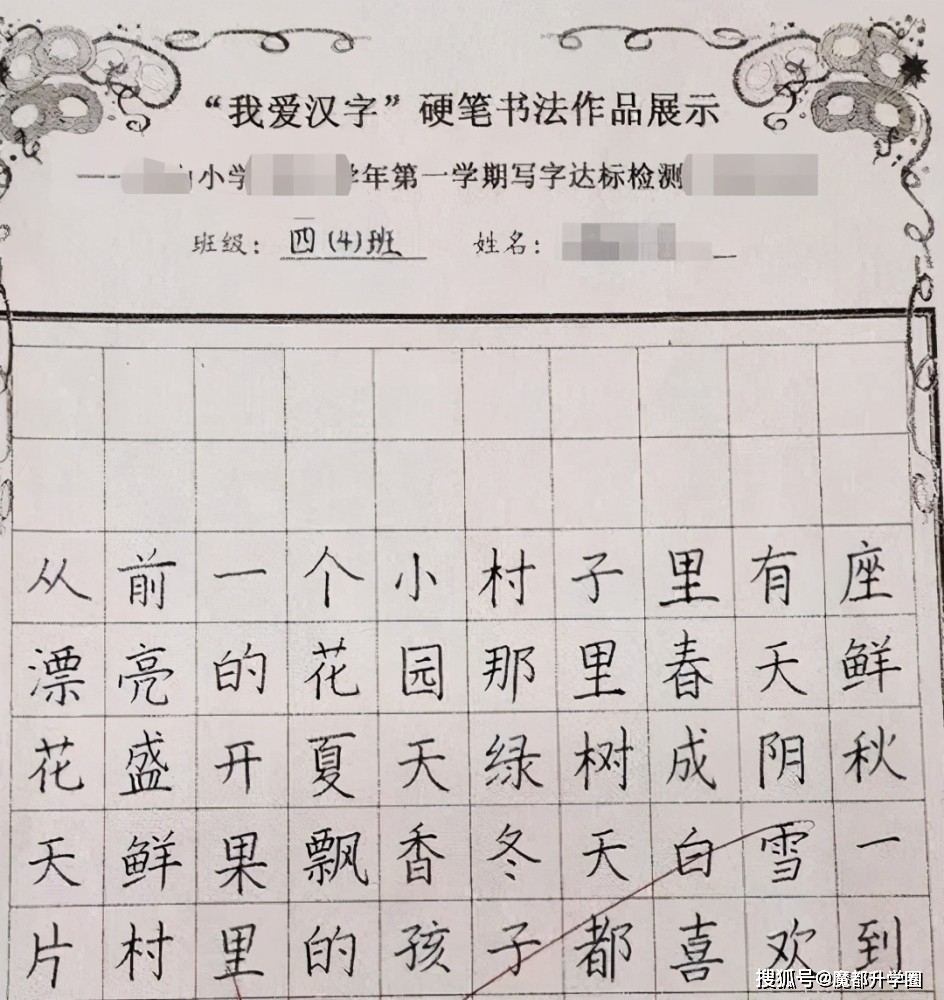 “我爱汉字”硬笔书法作品展示
小学 学年第一学期写字达标检测
班级：四(4)班 姓名：
从前一个小村子里有座
漂亮的花园那里春天鲜
花盛开夏天绿树成阴秋
天鲜果飘香冬天白雪一
片村里的孩子都喜欢到
搜狐号@魔都升学圈